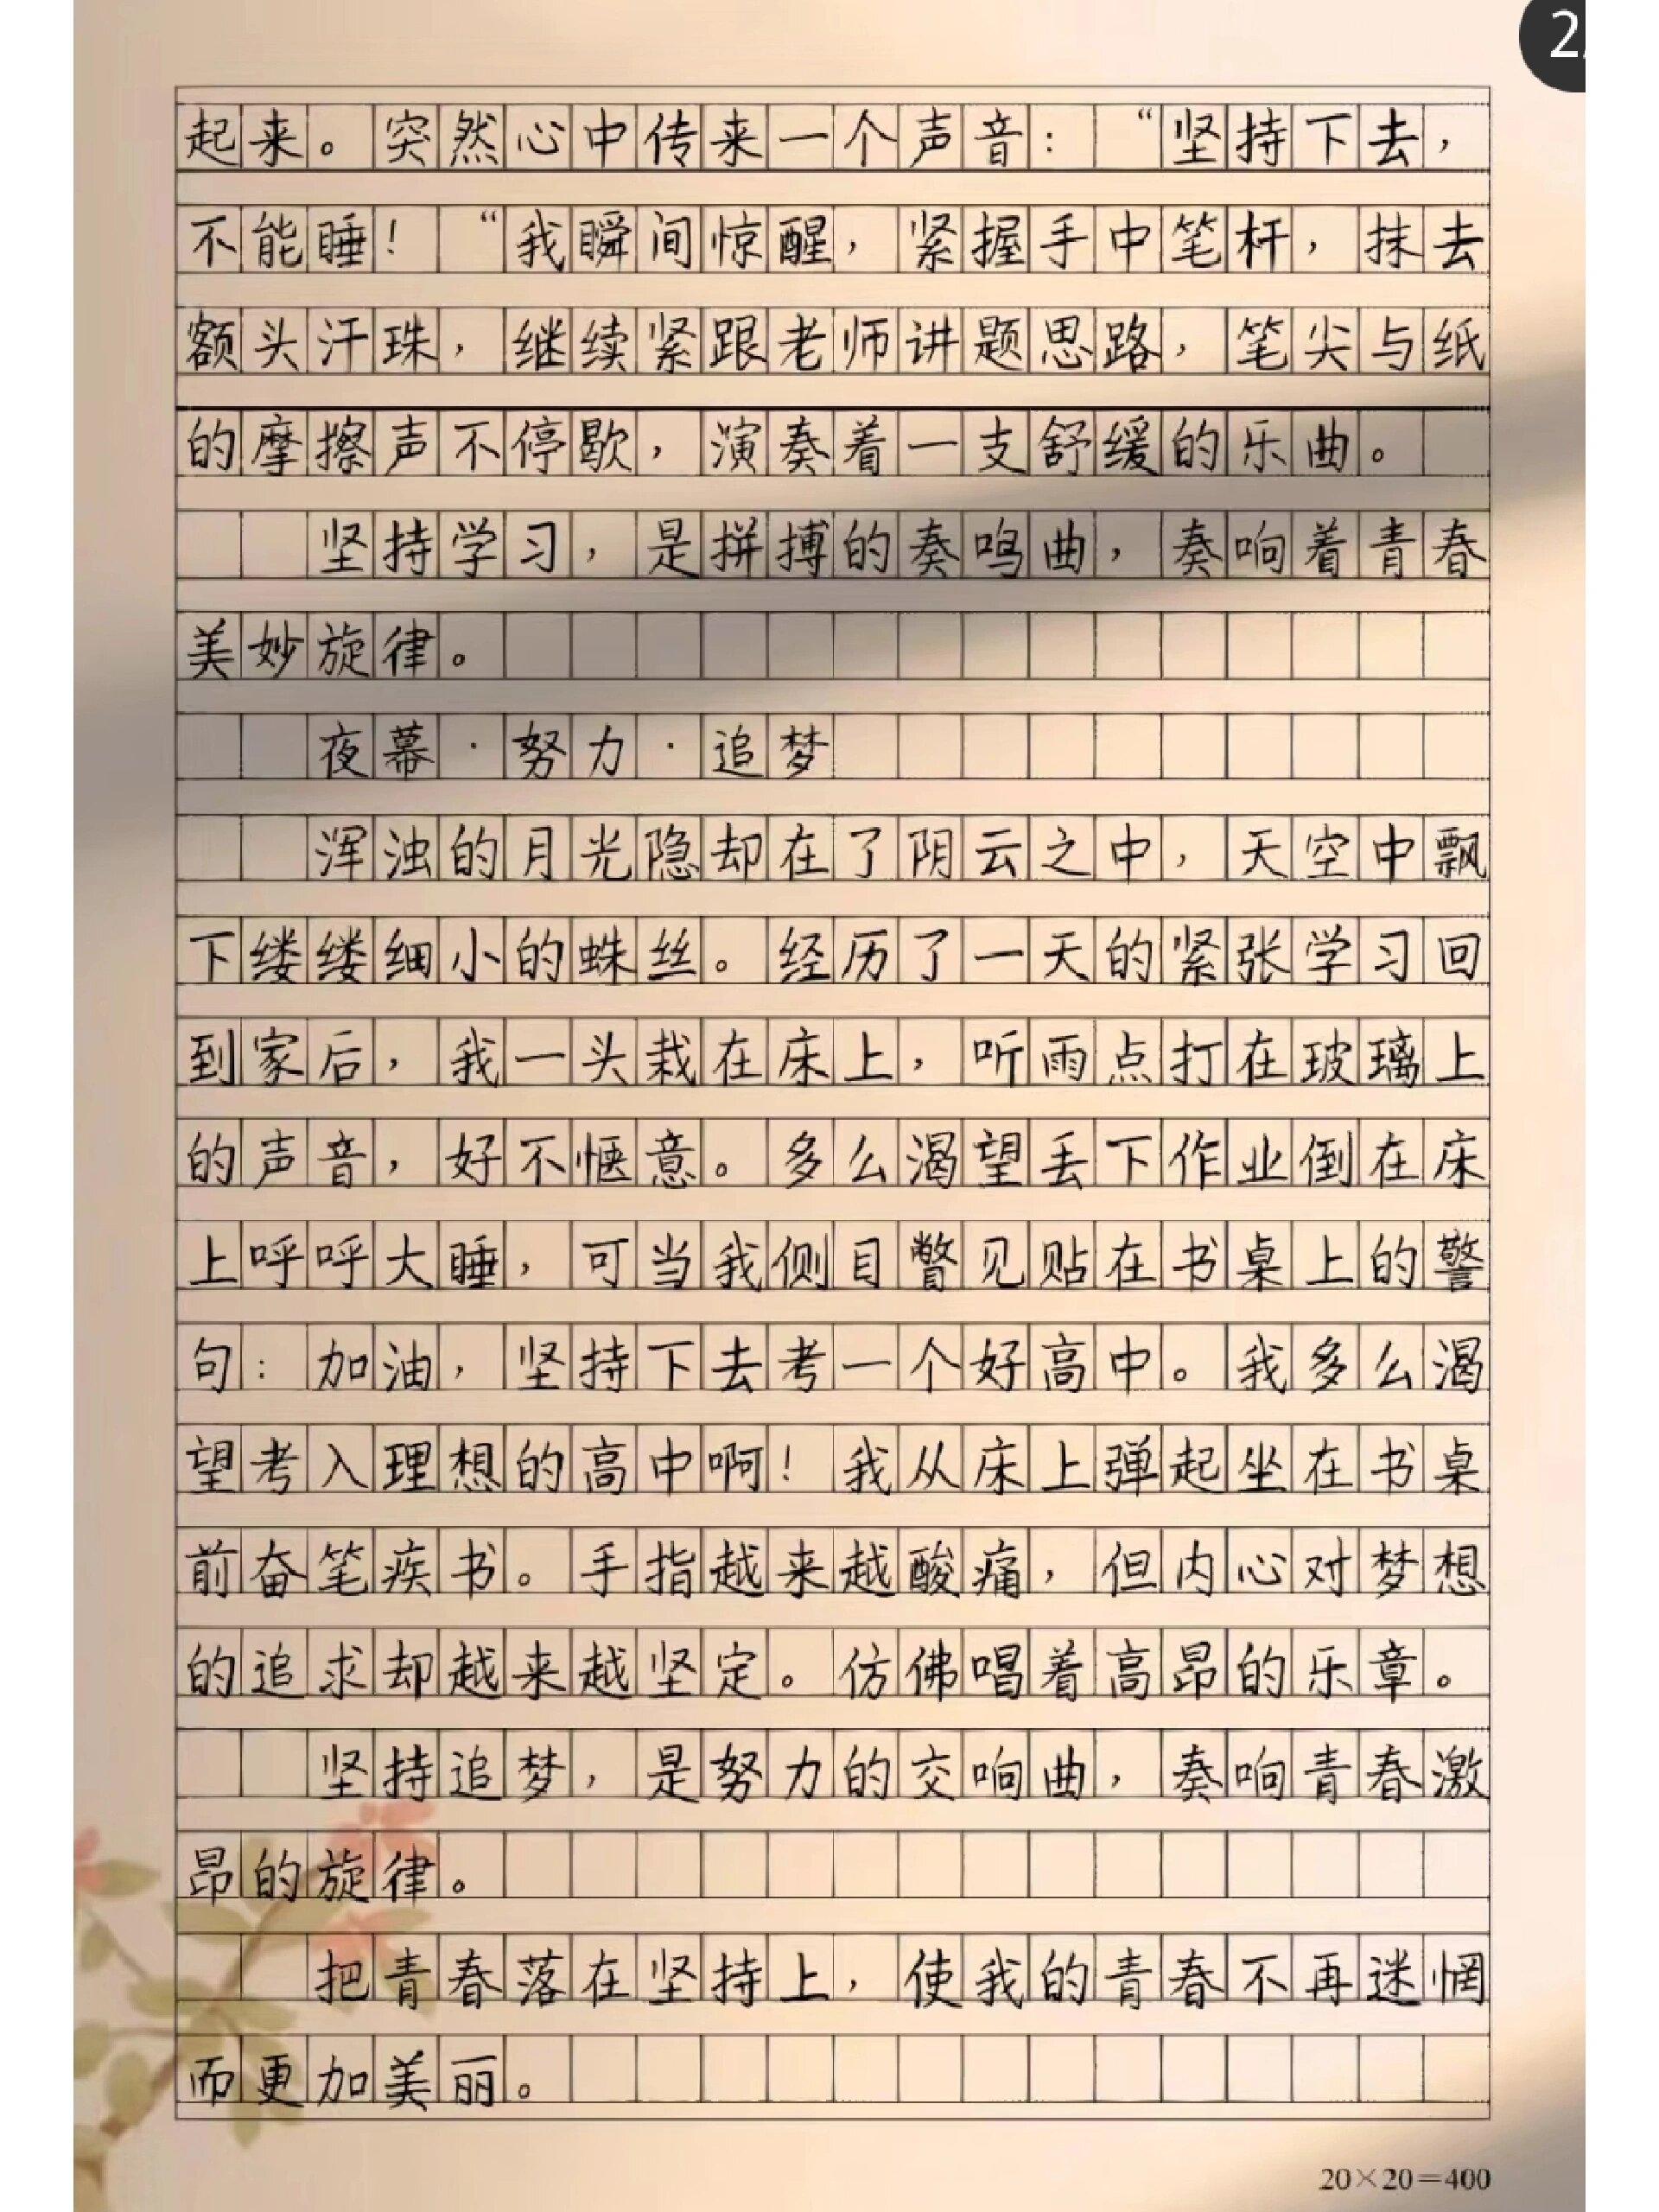 2
起来。突然心中传来一个声音：“坚持下去，
不能睡！“我瞬间惊醒，紧握手中笔杆，抹去
额头汗珠，继续紧跟老师讲题思路，笔尖与纸
的摩擦声不停歇，演奏着一支舒缓的乐曲。
坚持学习，是拼搏的奏鸣曲，奏响着青春
美妙旋律。
夜幕·努力·追梦
浑浊的月光隐却在了阴云之中，天空中飘
下缕缕细小的蛛丝。经历了一天的紧张学习回
到家后，我一头栽在床上，听雨点打在玻璃上
的声音，好不惬意。多么渴望丢下作业倒在床
上呼呼大睡，可当我侧目瞥见贴在书桌上的警
句：加油，坚持下去考一个好高中。我多么渴
望考入理想的高中啊！我从床上弹起坐在书桌
前奋笔疾书。手指越来越酸痛，但内心对梦想
的追求却越来越坚定。仿佛唱着高昂的乐章。
坚持追梦，是努力的交响曲，奏响青春激
昂的旋律。
把青春落在坚持上，使我的青春不再迷惘
而更加美丽。
20×20=400